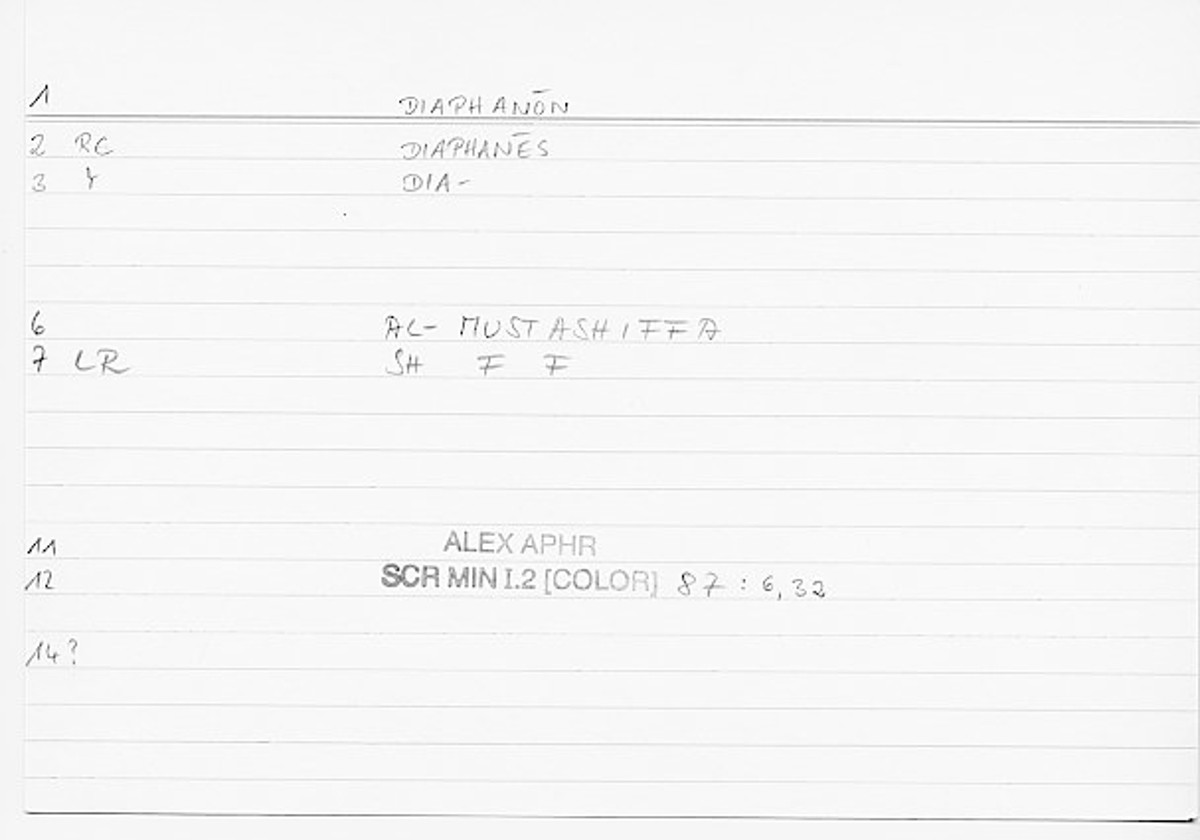 1 DIAPHANŌN
2 RC DIAPHANĒS
3 Y DIA-
6 AL- MUSTASHIFFA
7 LR SH F F
11 ALEX APHR
12 SCR MIN I.2 [COLOR] 87 : 6,32
14?